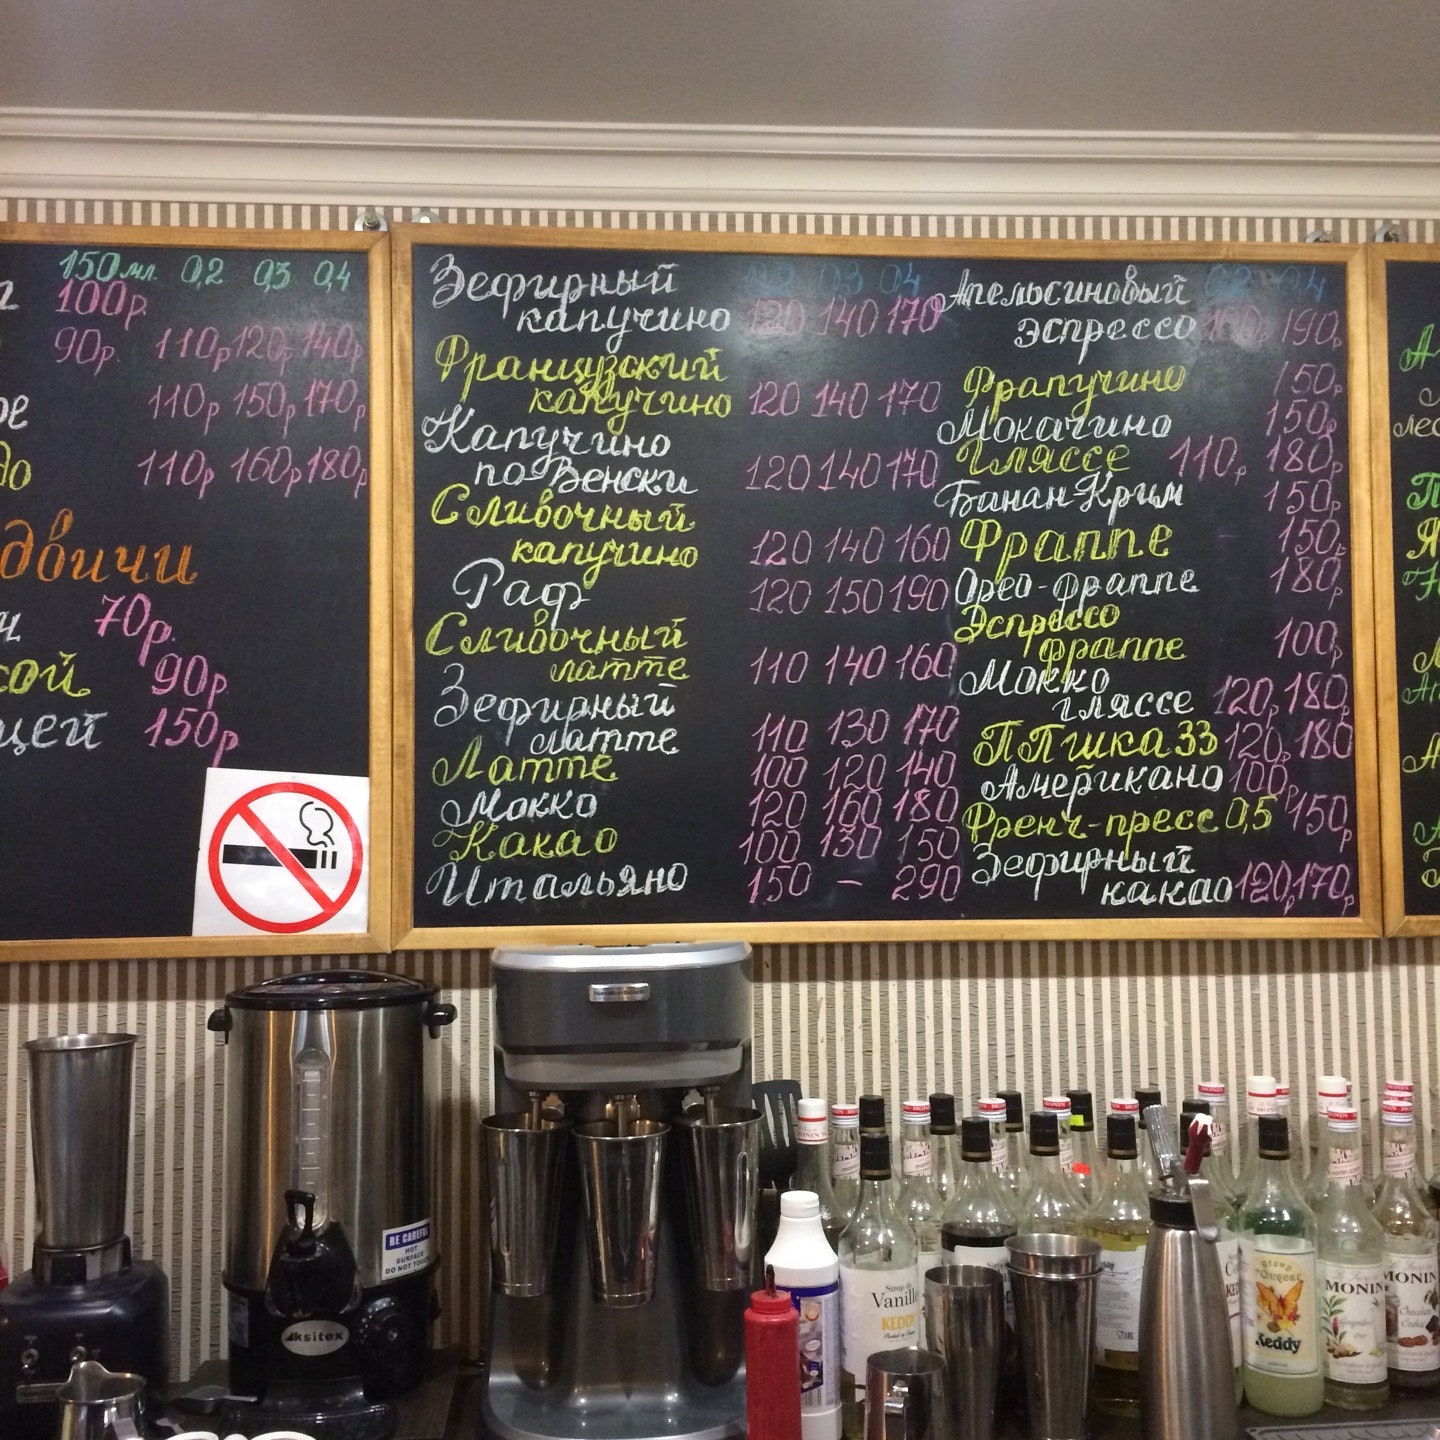 150мл. 0,2 0,3 0,4
100р.
90р. 110р 120р 140р
110р 150р 170р
110р 160р 180р
70р.
90р
150р
Зефирный 0,2 0,3 0,4
капучино 120 140 170
Французский
капучино 120 140 170
Капучино
по Венски 120 140 170
Сливочный
капучино 120 140 160
Раф 120 150 190
Сливочный
латте 110 140 160
Зефирный
латте 110 130 170
Латте 100 120 140
Мокко 120 160 180
Какао 100 130 150
Итальяно 150 — 290
Апельсиновый 0,2 0,4
эспрессо 190р
Фрапучино 150р
Мокачино 150р
Гляссе 110р 180р
Банан-Крим 150р
Фраппе 150р
Орео-фраппе 180р
Эспрессо
фраппе 100р
Мокко
гляссе 120р 180р
ПТПшка 33 120р 180
Американо 100р
Френч-пресс 0,5 150р
Зефирный
какао 120р 170р
BE CAREFUL
HOT
SURFACE
DO NOT TOUCH
Aksitex
Sirop de
Vanill
KEDDY
Keddy
MONIN
MONIN
MONIN